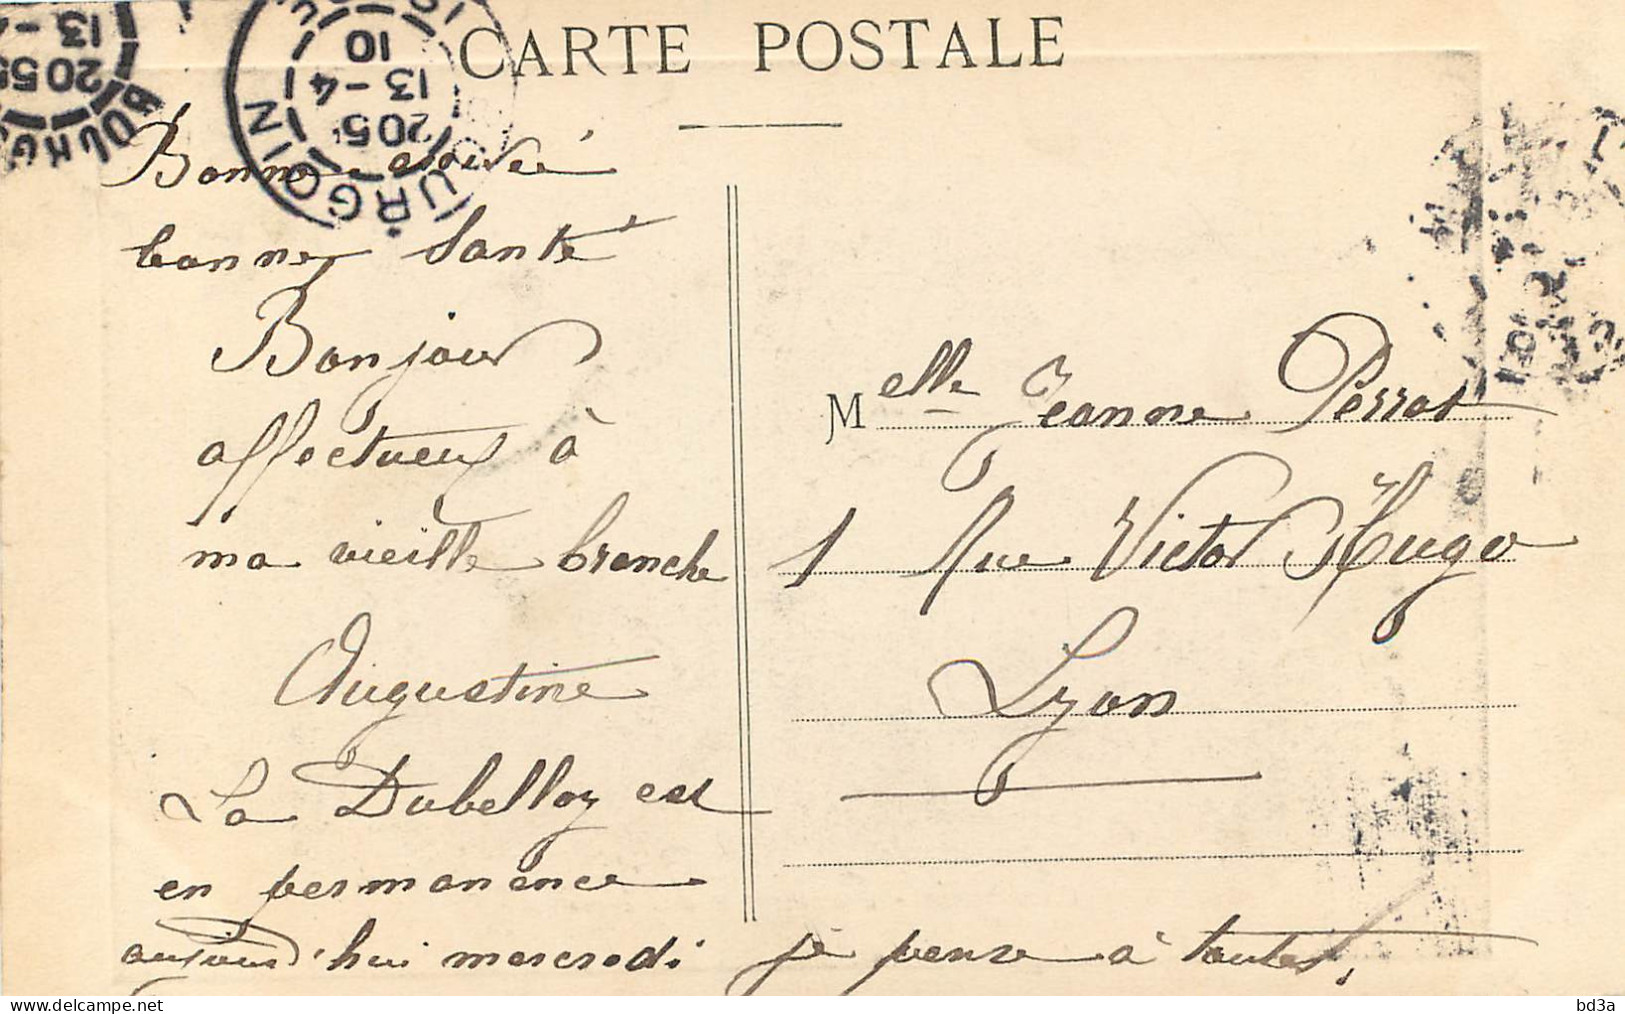 CARTE POSTALE
BOURGOIN
20 55
13-4
BOURGOIN
205
13-4
10
Bonne arrivée
bonne Santé
Bonjour
affectueux à
ma vieille branche
Augustine
La Dubelloy est
en permanence
aujourd'hui mercredi je pense à toutes.
Melle Jeanne Perrot
1 Rue Victor Hugo
Lyon
bd3a